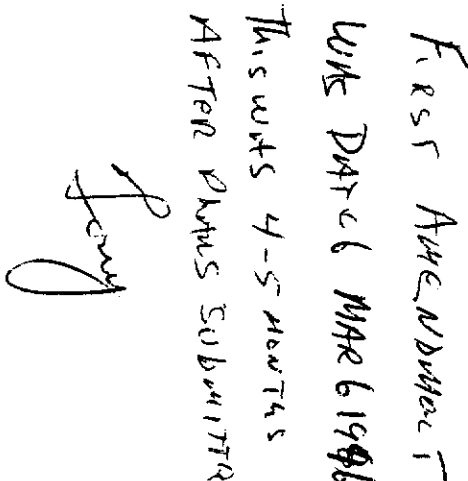 FIRST AMENDMENT
WAS DATED MAR 6 1996
THIS WAS 4-5 MONTHS
AFTER PLANS SUBMITTED